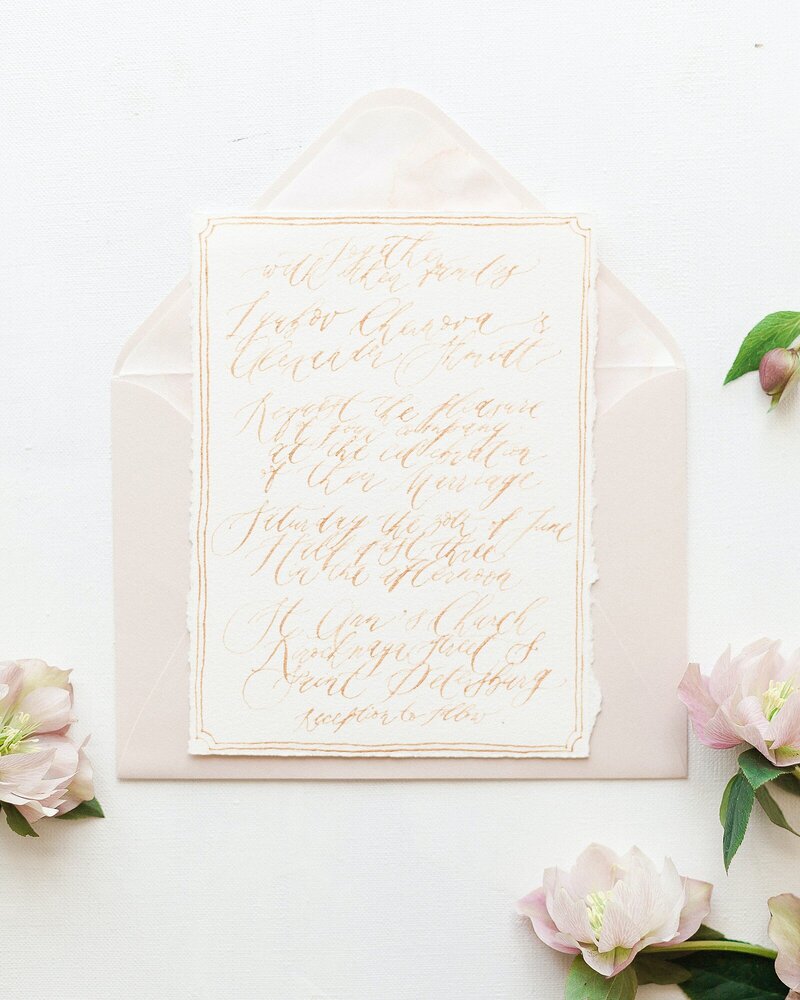 Together
with their families
Chernova &
Alexander Shmidt
Request the pleasure
of your company
at the celebration
of their Marriage
Saturday the 30th of June
Half past three
in the afternoon
St Ann's Church
street 8
Saint Petersburg
Reception to follow